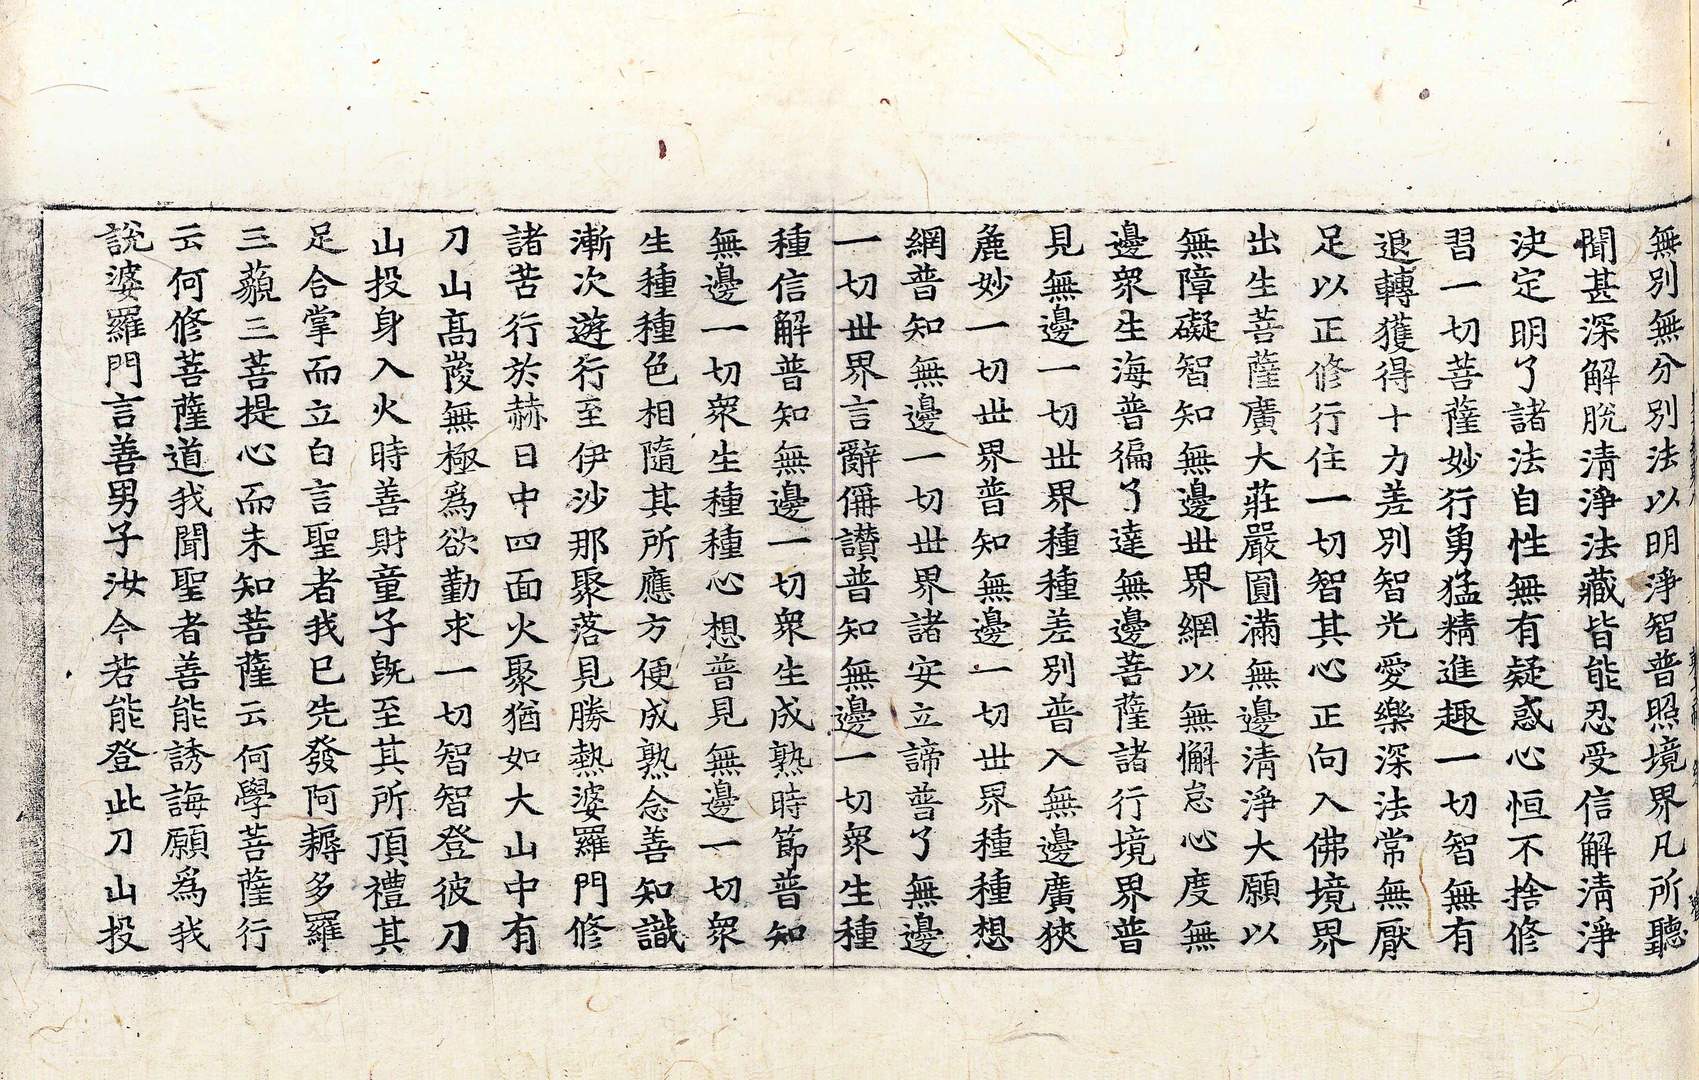 無別無分別法以明淨智普照境界凡所聽
聞甚深解脫清淨法藏皆能忍受信解清淨
決定明了諸法自性無有疑惑心恒不捨修
習一切菩薩妙行勇猛精進趣一切智無有
退轉獲得十力差別智光愛樂深法常無厭
足以正修行住一切智其心正向入佛境界
出生菩薩廣大莊嚴圓滿無邊清淨大願以
無障礙智知無邊世界網以無懈怠心度無
邊衆生海普徧了達無邊菩薩諸行境界普
見無邊一切世界種種差別普入無邊廣狹
麁妙一切世界普知無邊一切世界種種想
網普知無邊一切世界諸安立諦普了無邊
一切世界言辭偁讃普知無邊一切衆生種
種信解普知無邊一切衆生成熟時節普知
無邊一切衆生種種心想普見無邊一切衆
生種種色相隨其所應方便成熟念善知識
漸次遊行至伊沙那聚落見勝熱婆羅門修
諸苦行於赫日中四面火聚猶如大山中有
刀山高峻無極爲欲勤求一切智智登彼刀
山投身入火時善財童子旣至其所頂禮其
足合掌而立白言聖者我已先發阿耨多羅
三藐三菩提心而未知菩薩云何學菩薩行
云何修菩薩道我聞聖者善能誘誨願爲我
說婆羅門言善男子汝今若能登此刀山投